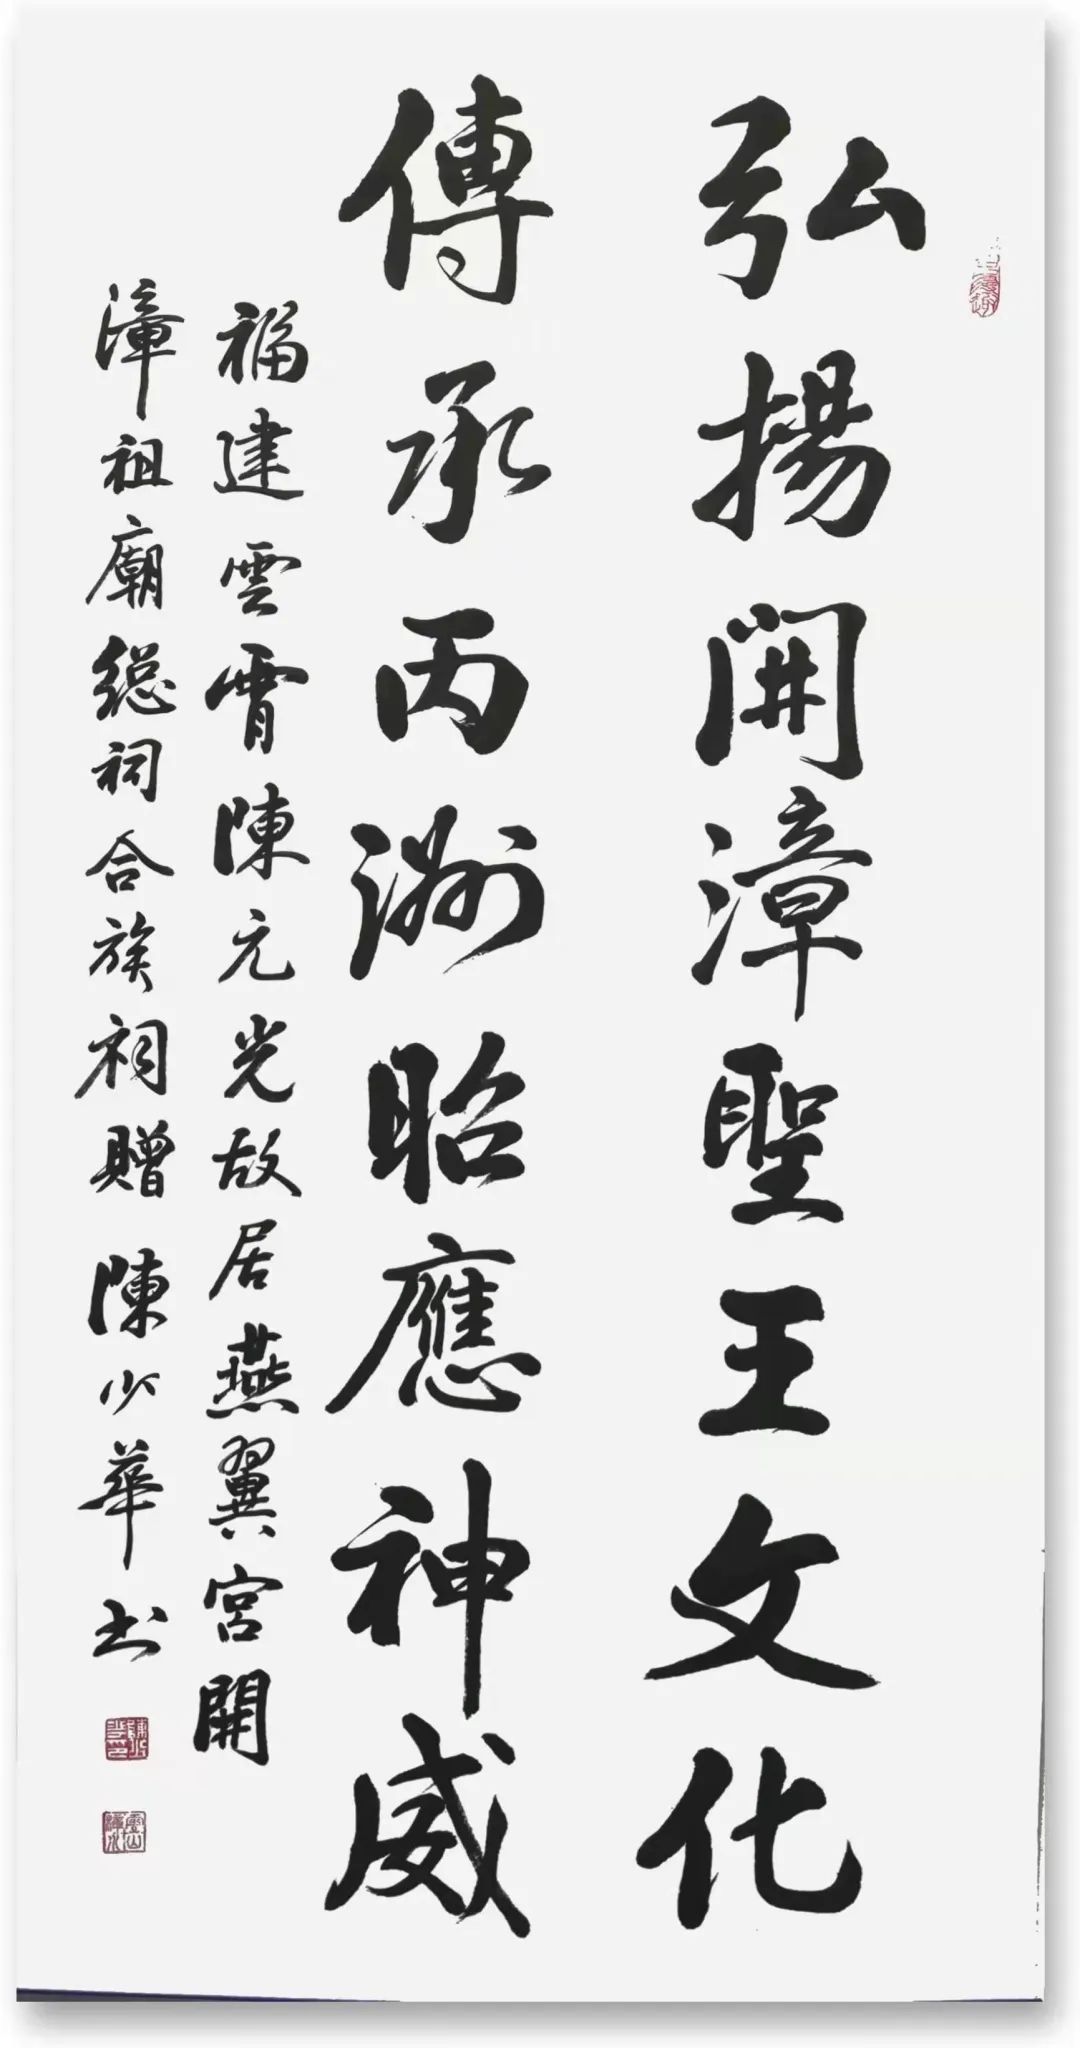 弘揚開漳聖王文化
傳承丙洲昭應神威
福建雲霄陳元光故居燕翼宮開
漳祖廟總祠合族祠贈 陳少華书
雲山漳水